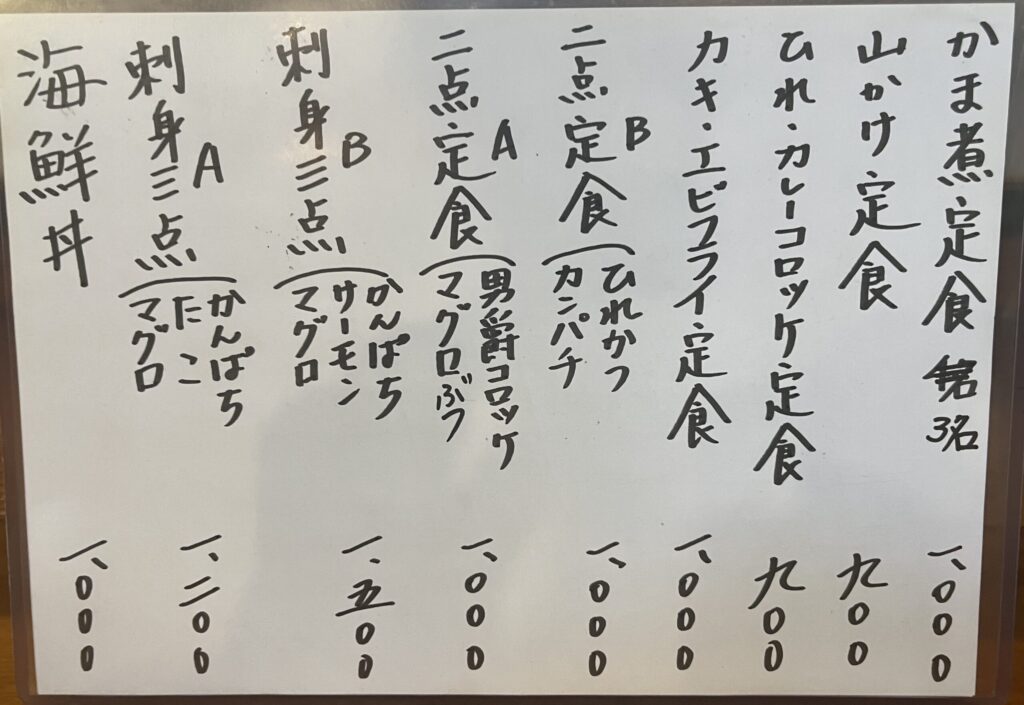 かま煮定食 3名 一、000
山かけ定食 九00
ひれ・カレーコロッケ定食 九00
カキ・エビフライ定食 一、000
二点定食B（ひれかつ
カンパチ 一、000
二点定食A（男爵コロッケ
マグロぶつ 一、000
刺身三点B（かんぱち
サーモン
マグロ 一、五00
刺身三点A（かんぱち
たこ
マグロ 一、二00
海鮮丼 一、000